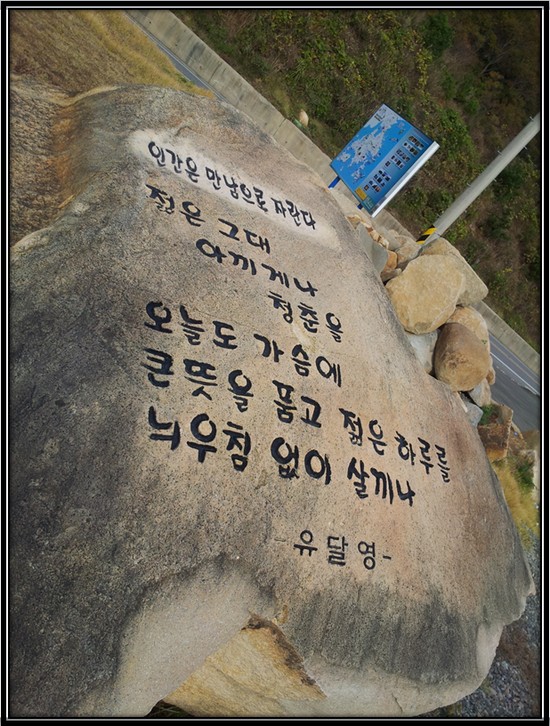 인간은 만남으로 자란다
젊은 그대
아끼게나
청춘을
오늘도 가슴에
큰 뜻을 품고 젊은 하루를
뉘우침 없이 살끼나
-유달영-